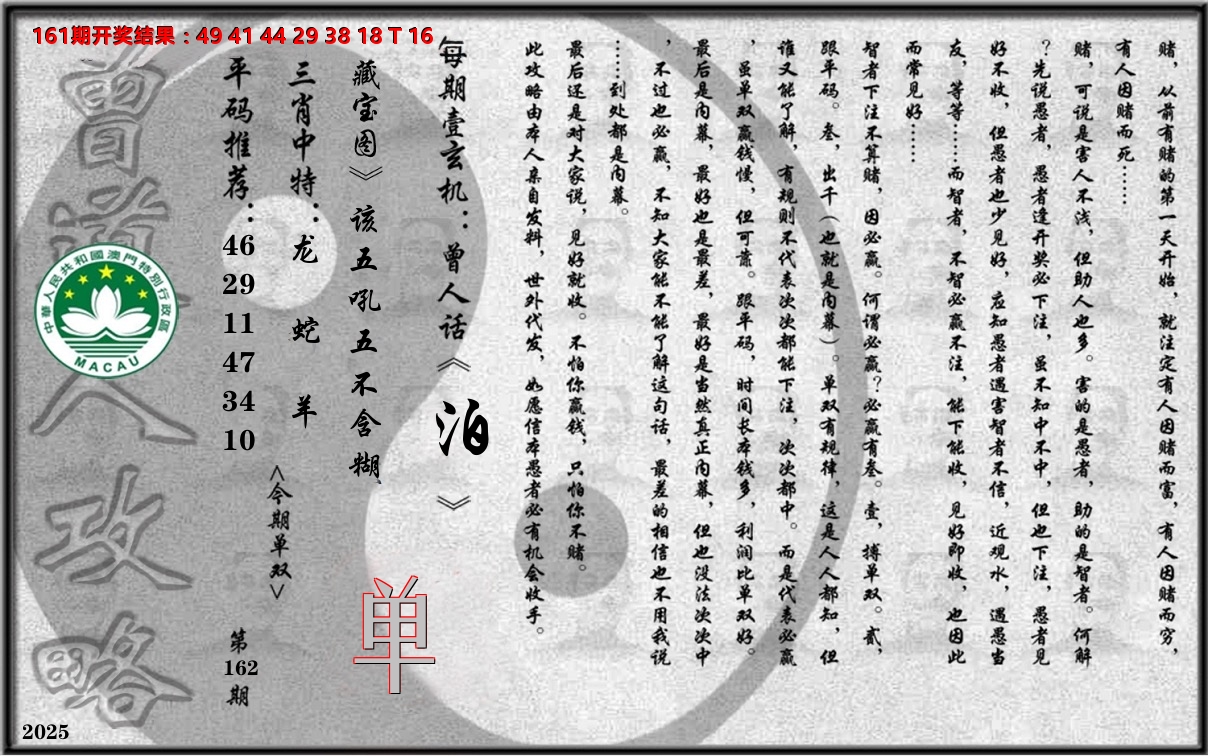 161期开奖结果：49 41 44 29 38 18 T 16
赌，从前有赌的第一天开始，就注定有人因赌而富，有人因赌而穷，
有人因赌而死……
赌，可说是害人不浅，但助人也多。害的是愚者，助的是智者。何解
？先说愚者，愚者逢开奖必下注，虽不知中不中，但也下注，愚者见
好不收，但愚者也少见好，应知愚者遇害智者不信，近观水，遇愚当
友，等等……而智者，不智必赢不注，能下能收，见好即收，也因此
而常见好……
智者下注不算赌，因必赢。何谓必赢？必赢有叁。壹，搏单双。贰，
跟平码。叁，出千（也就是内幕）。单双有规律，这是人人都知，但
谁又能了解，有规则不代表次次都能下注，次次都中。而是代表必赢
，虽单双赢钱慢，但可靠。跟平码，时间长本钱多，利润比单双好。
最后是内幕，最好也是最差，最好是当然真正内幕，但也没法次次中
，不过也必赢，不知大家能不能了解这句话，最差的相信也不用我说
……到处都是内幕。
最后还是对大家说，见好就收。不怕你赢钱，只怕你不赌。
此攻略由本人亲自发料，世外代发，如愿信本愚者必有机会收手。
每期壹玄机：曾人话《泊》
藏宝图》该五吼五不含糊
三肖中特：龙 蛇 羊
<今期单双>
单
平码推荐：46 29 11 47 34 10
第162期
曾道人攻略
中華人民共和國澳門特別行政區
MACAU
2025